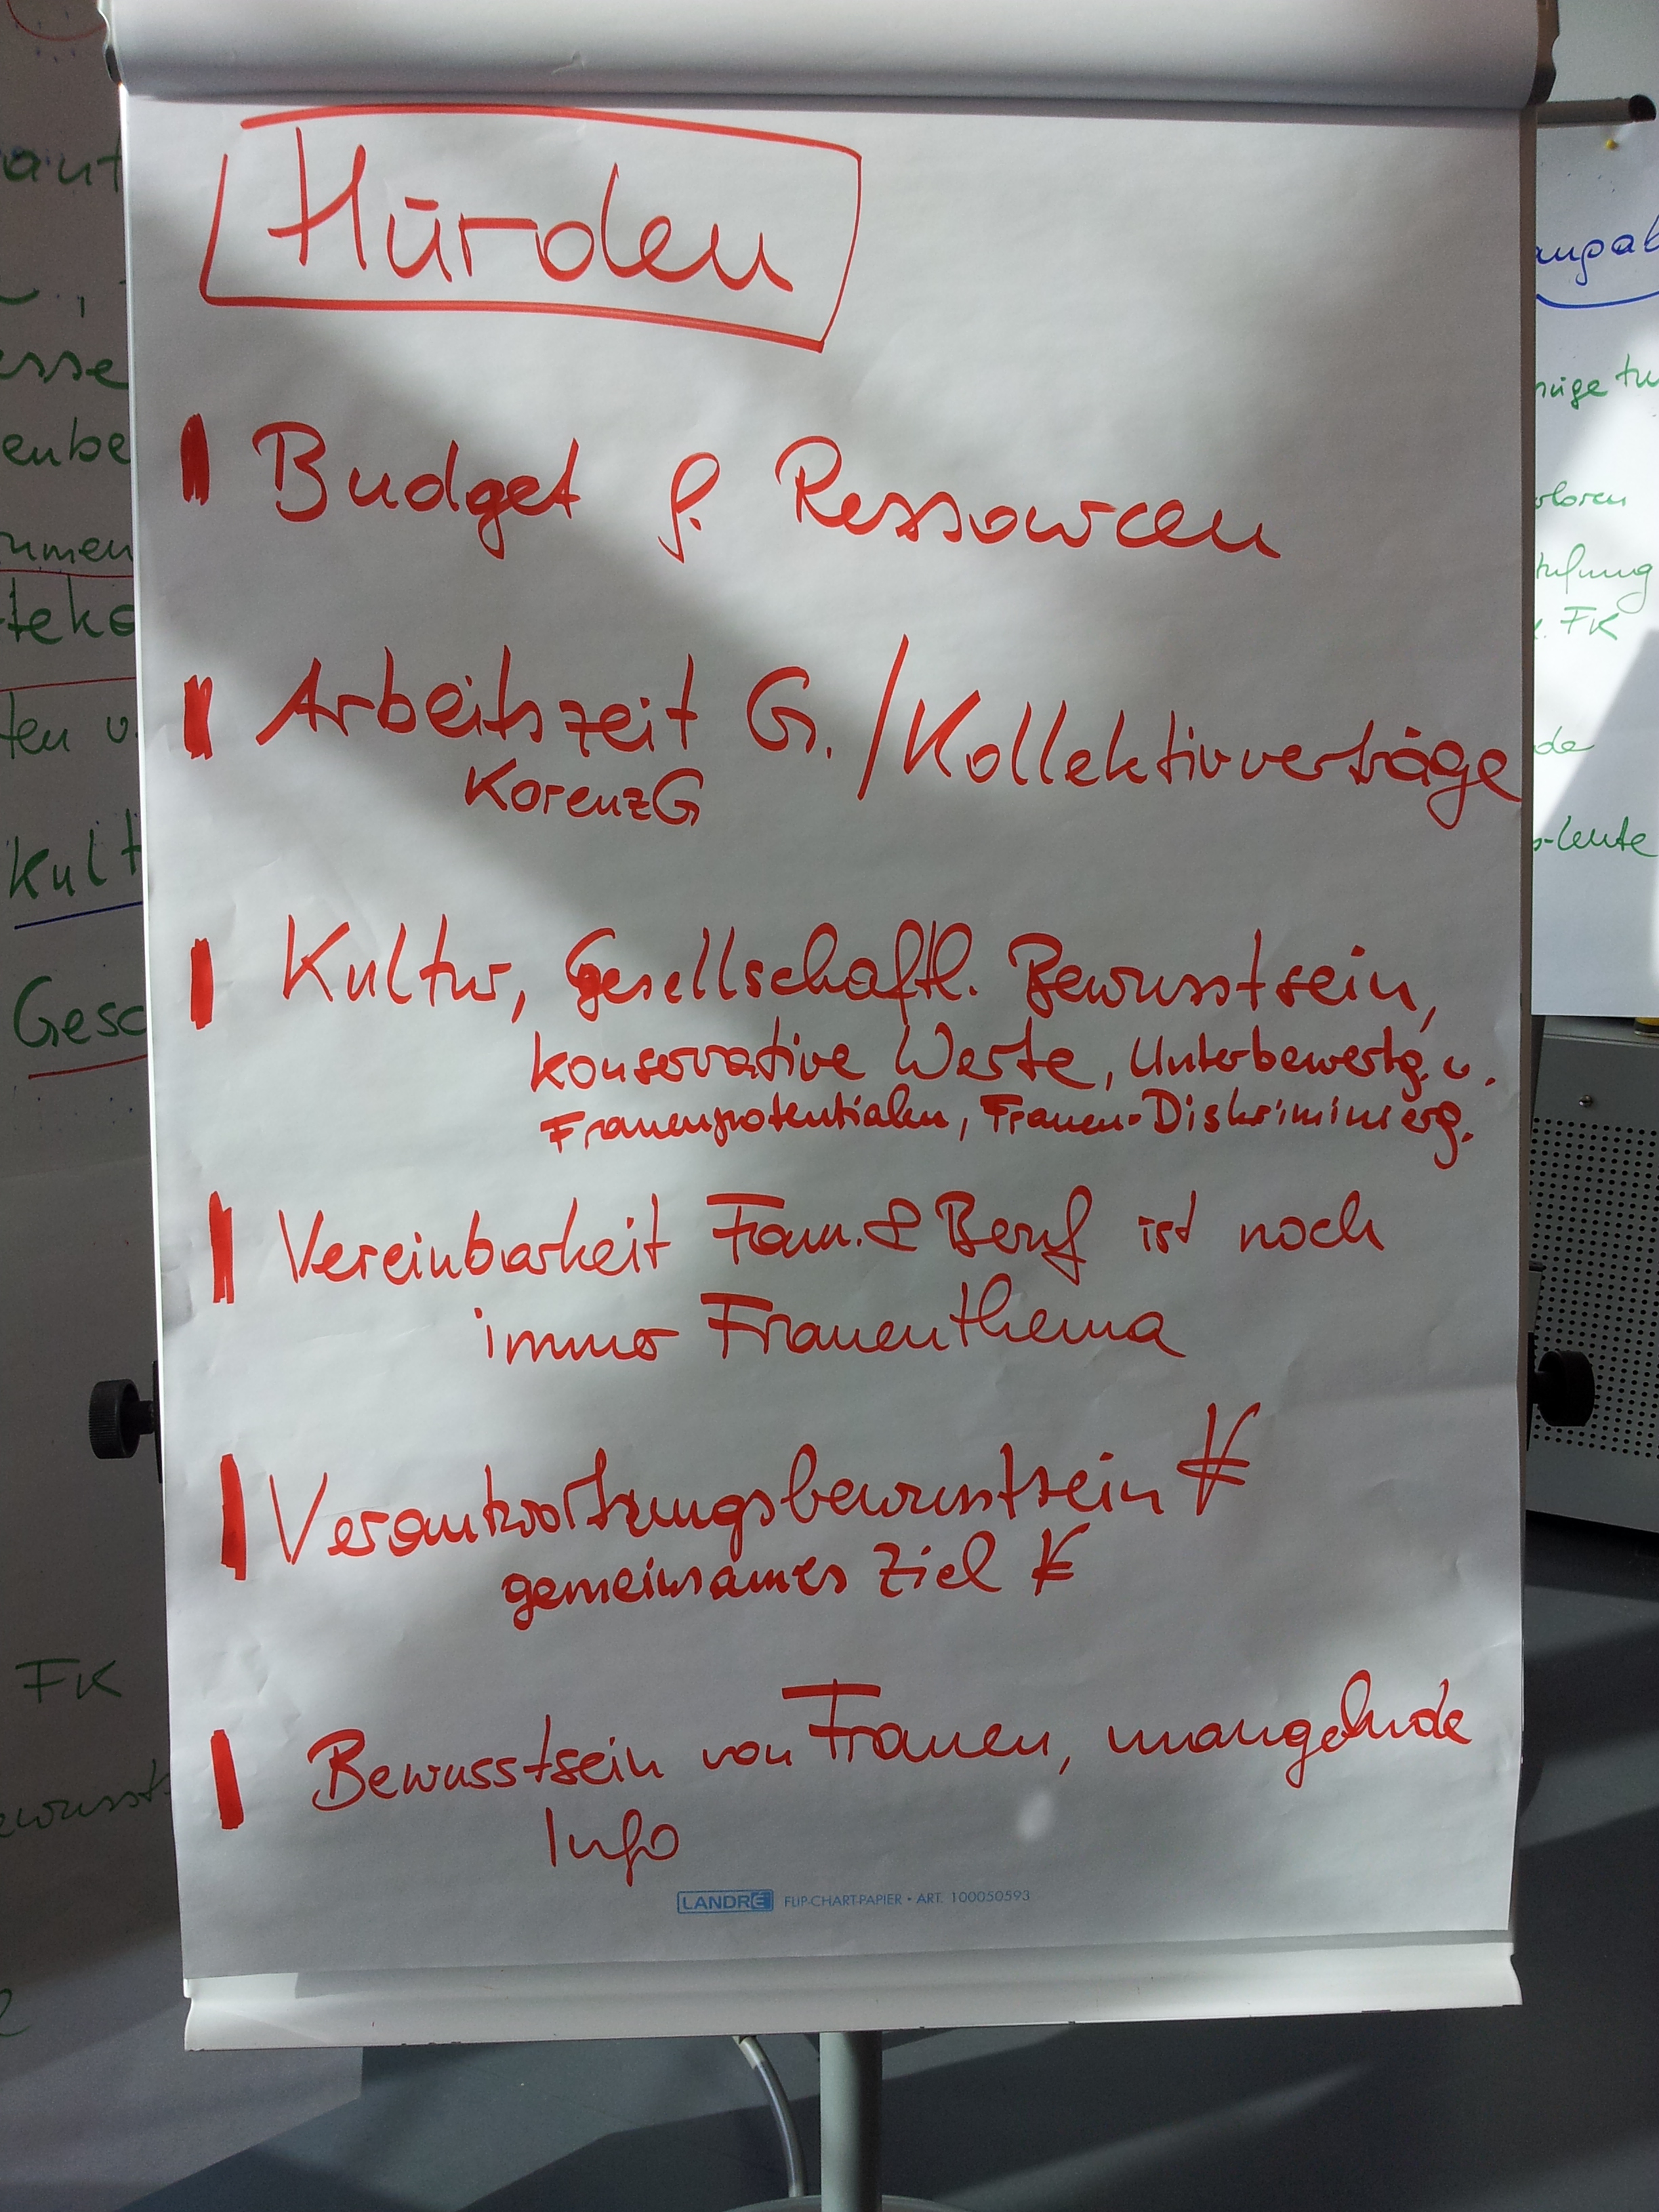 Hürden
Budget f. Ressourcen
Arbeitszeit G. / Kollektivverträge
KorenzG
Kultur, gesellschaftl. Bewusstsein,
konservative Werte, Unterbewertg. v.
Frauenpotentialen, Frauen-Diskriminierg.
Vereinbarkeit Fam. & Beruf ist noch
immer Frauenthema
Verantwortungsbewusstsein
gemeinsames Ziel
Bewusstsein von Frauen, mangelnde
Info
LANDRÉ FLIP-CHART-PAPIER • ART. 100050593
FK
Kult
Gesc
FK